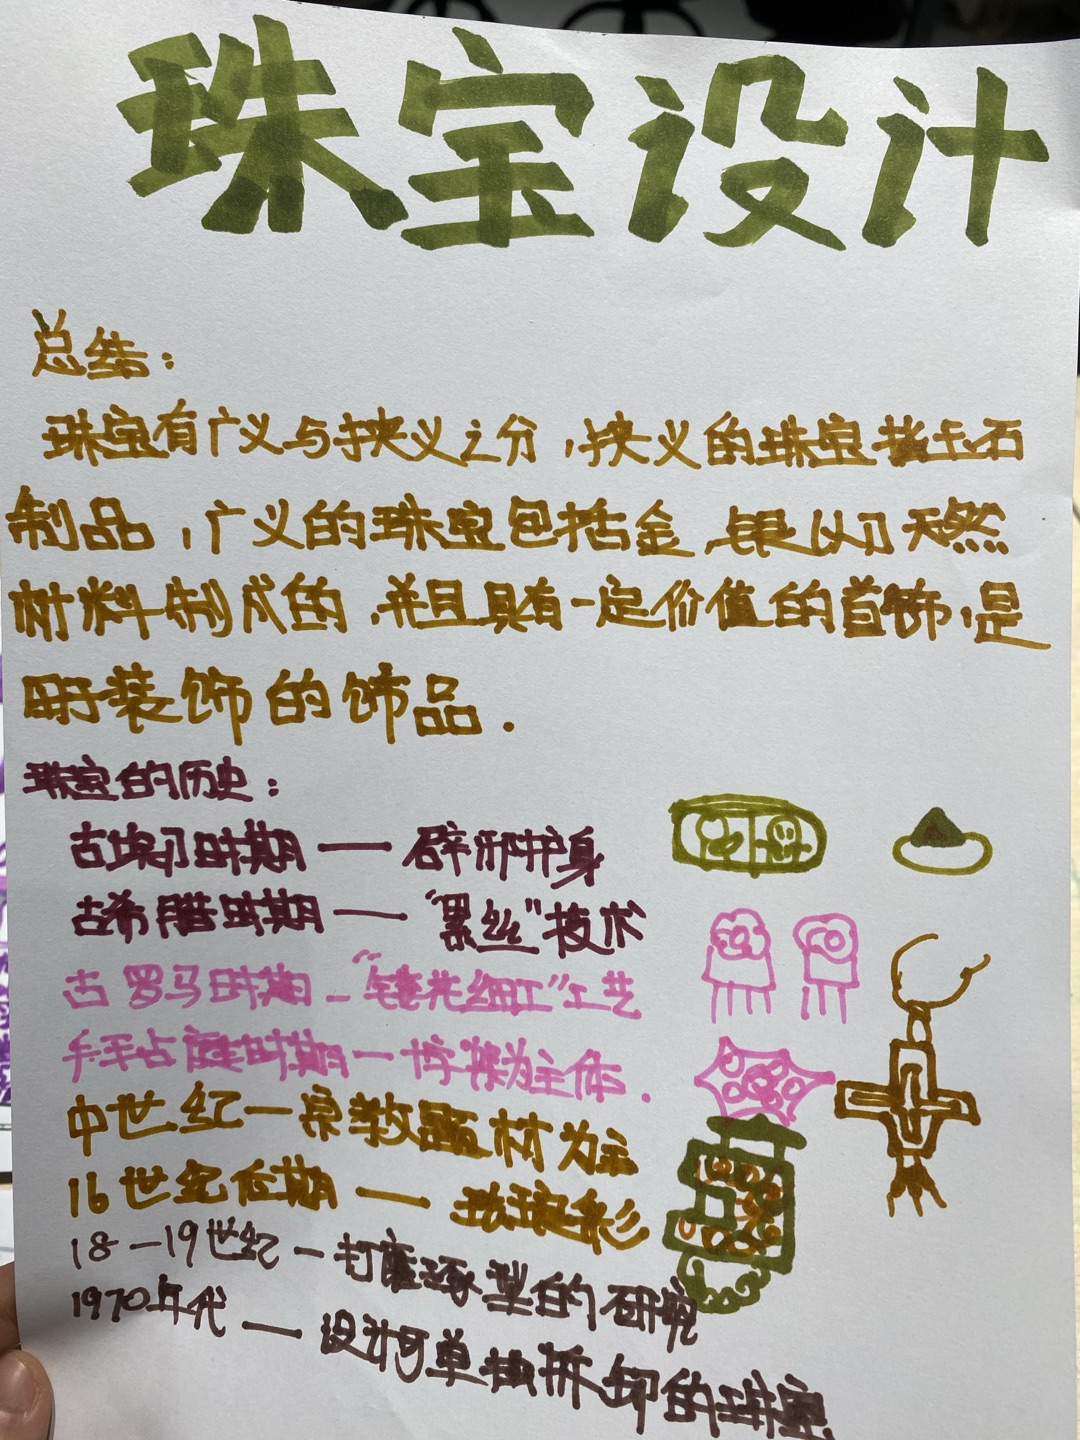 珠宝设计
总结：
珠宝有广义与狭义之分，狭义的珠宝指玉石
制品，广义的珠宝包括金、银以及天然
材料制成的，并且具有一定价值的首饰，是
用于装饰的饰品．
珠宝的历史：
古埃及时期——辟邪护身
古希腊时期——“累丝”技术
古罗马时期—“镂花细工”工艺
拜占庭时期—十字架为主体．
中世纪—宗教题材为主
16世纪后期——珐琅彩
18—19世纪—打磨琢型的研究
1970年代——设计可单独拆卸的珠宝